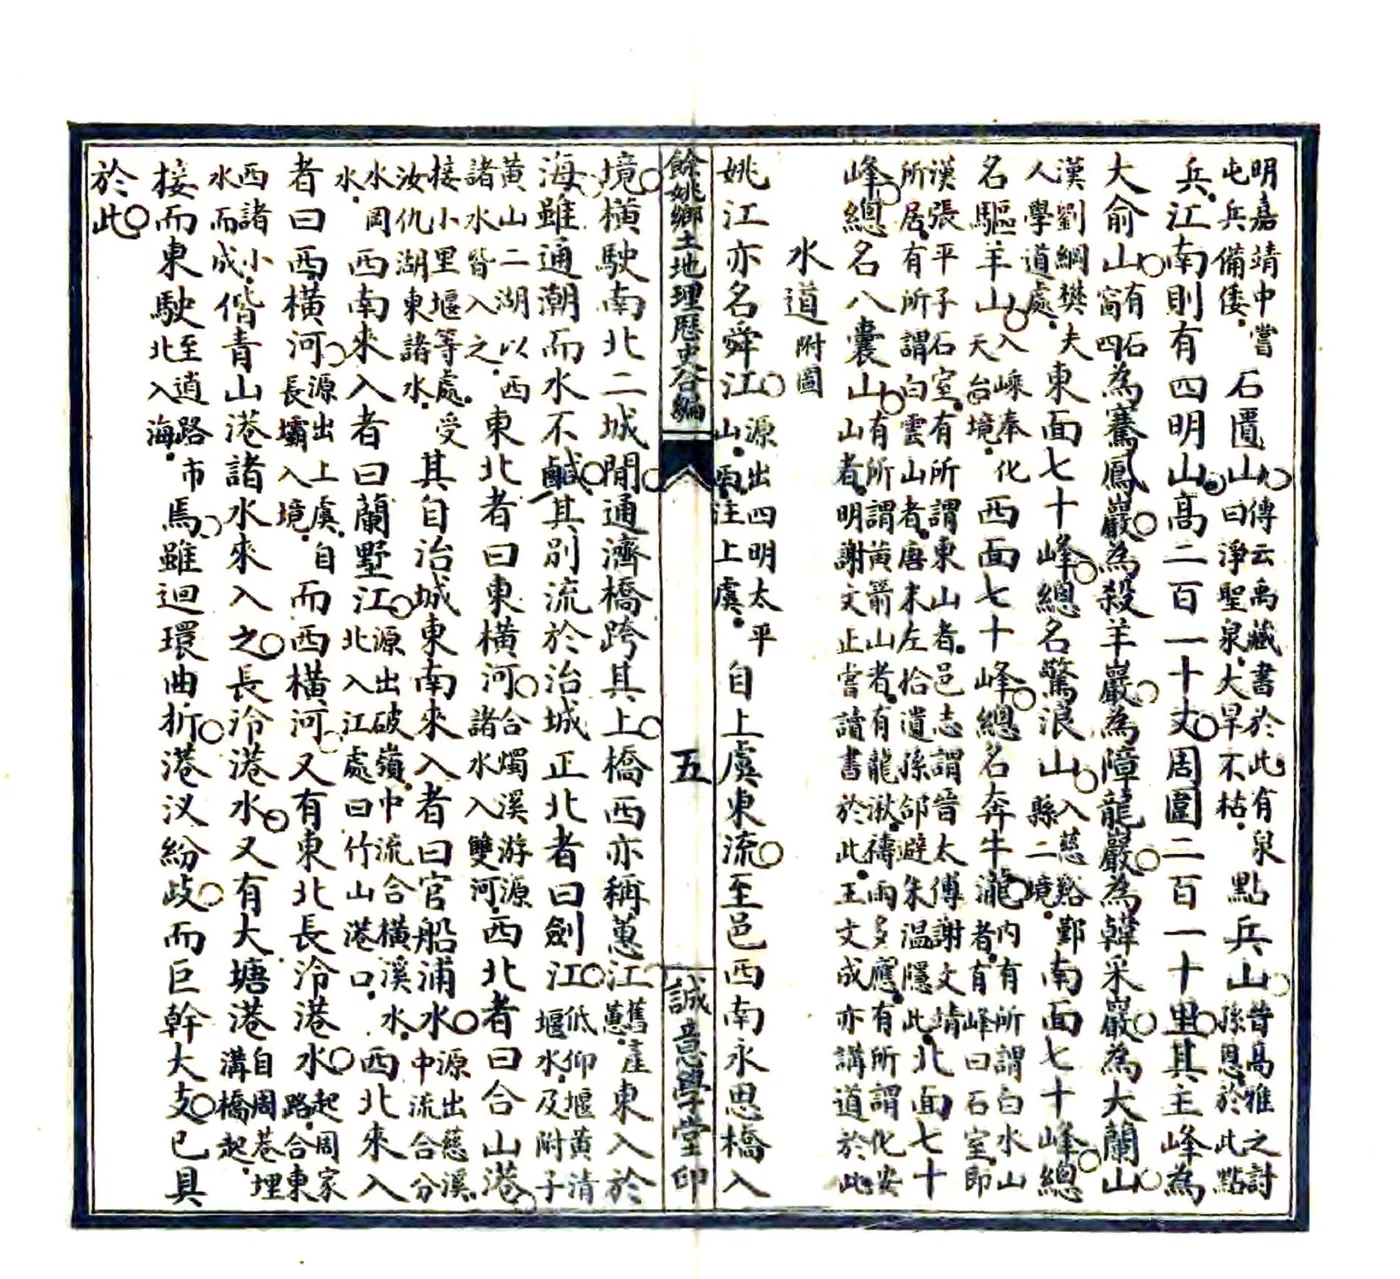 明嘉靖中嘗屯兵備倭。石匱山傳云禹藏書於此有泉曰淨聖泉。大旱不枯。點兵山昔高雅之討孫恩於此點
兵。江南則有四明山高二百一十丈周圍二百一十里其主峰為
大俞山有石窗四為騫鳳巖為殺羊巖為障龍巖為韓采巖為大蘭山
漢劉綱樊夫人學道處。東面七十峰總名驚浪山入慈谿鄞縣二境。南面七十峰總
名驅羊山入嵊奉化天台境。西面七十峰總名奔牛瀧內有所謂白水山者有峰曰石室。即
漢張平子石室。有所謂東山者。邑志謂晉太傅謝文靖所居。有所謂白雲山者。唐末左拾遺孫郃避朱温隱此。北面七十
峰總名八囊山有所謂黃箭山者。有龍湫。禱雨多應。有所謂化安山者。明謝文正嘗讀書於此。王文成亦講道於此
水道附圖
姚江亦名舜江源出四明太平山。西注上虞。自上虞東流至邑西南永思橋入
餘姚鄉土地理歷史合編 五 誠意學堂印
境橫駛南北二城間通濟橋跨其上橋西亦稱蕙江舊產蕙。東入於
海。雖通潮而水不鹹其別流於治城正北者曰劍江低仰堰黃清堰水。及附子
黃山二湖以西諸水皆入之。東北者曰東橫河合燭溪游源諸水入雙河。西北者曰合山港
接小里堰等處。受汝仇湖東諸水。其自治城東南來入者曰官船浦水源出慈溪。中流合分
水岡水。西南來入者曰蘭墅江源出破嶺。中流合橫溪水。北入江處曰竹山港口。西北來入
者曰西橫河源出上虞。自長壩入境。而西橫河又有東北長泠港水起周家路。合東
西諸小水而成。偕青山港諸水來入之長泠港水又有大塘港自周巷埋溝橋起。
接而東駛至道路市北入海。馬雖迴環曲折港汊紛歧而巨幹大支已具
於此